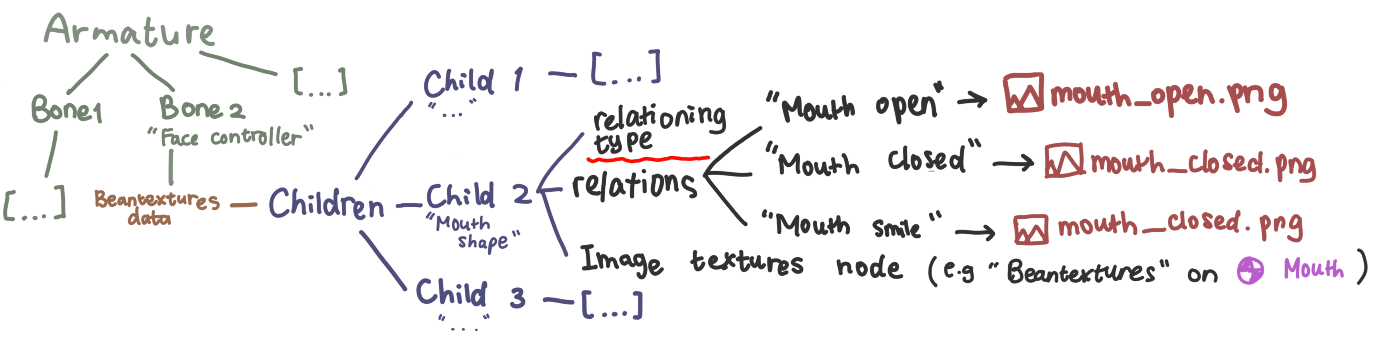 Armature
Bone1
Bone 2
"Face controller"
[...]
[...]
Beantextures
data
Children
Child 1
"..."
[...]
Child 2
"Mouth
shape"
Child 3
"...."
[...]
relationing
type
relations
"Mouth open" → mouth_open.png
"Mouth closed" → mouth_closed.png
"Mouth smile" → mouth_closed.png
Image textures node (e.g "Beantextures" on Mouth)